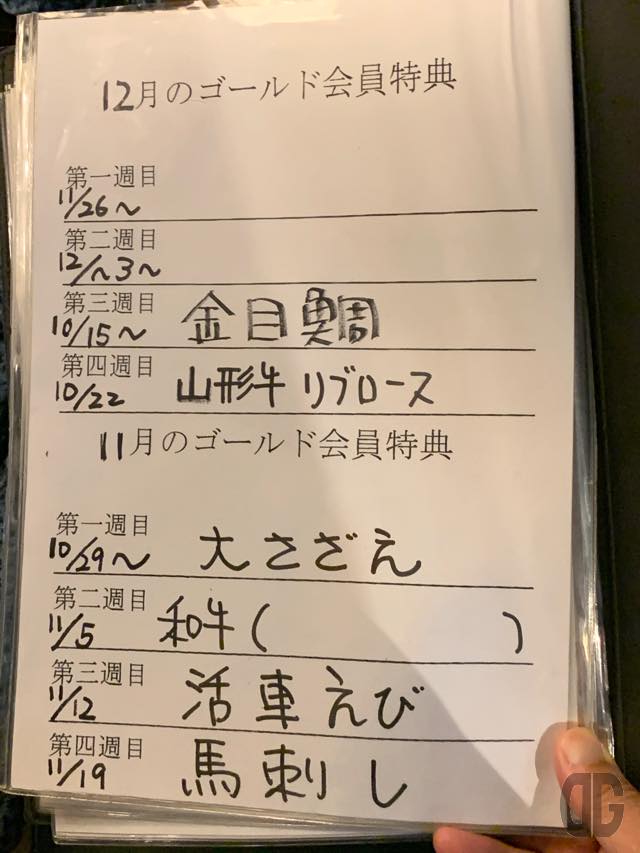 12月のゴールド会員特典
第一週目
11/26〜
第二週目
12/3〜
第三週目
10/15〜 金目鯛
第四週目
10/22 山形牛 リブロース
11月のゴールド会員特典
第一週目
10/29〜 大さざえ
第二週目
11/5 和牛( )
第三週目
11/12 活車えび
第四週目
11/19 馬刺し
DG